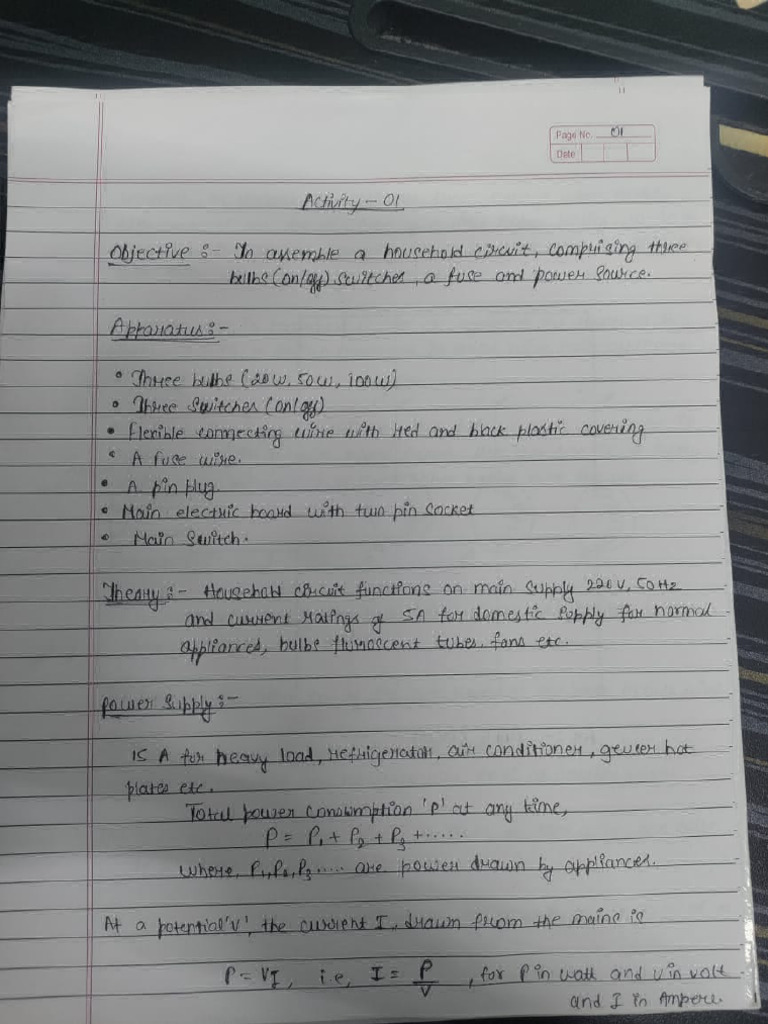 Page No. 01
Date
Activity - 01
Objective :- To assemble a household circuit, comprising three
bulbs (on/off) switches, a fuse and power source.
Apparatus :-
• Three bulbs (20W, 50W, 100W)
• Three switches (on/off)
• Flexible connecting wire with red and black plastic covering
• A fuse wire.
• A pin plug
• Main electric board with two pin socket
• Main Switch.
Theory :- Household circuit functions on main supply 220V, 50Hz
and current ratings of 5A for domestic supply for normal
appliances, bulbs fluroscent tubes, fans etc.
Power Supply :-
15 A for heavy load, refrigerator, air conditioner, geyser hot
plates etc.
Total power consumption 'P' at any time,
P = P₁ + P₂ + P₃ + .....
where, P₁, P₂, P₃ ..... are power drawn by appliances.
At a potential 'V', the current I, drawn from the mains is
P = VI, i.e, I = P/V, for P in watt and V in volt
and I in Ampere.